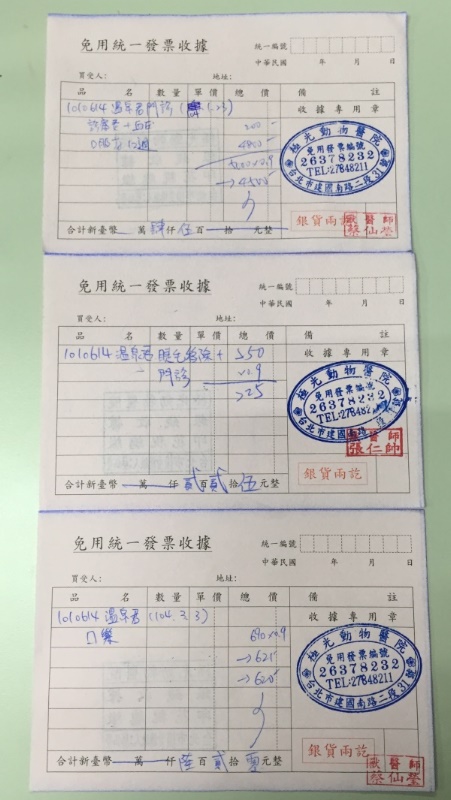 免用統一發票收據
統一編號
中華民國 年 月 日
買受人： 地址：
品 名 數量 單價 總價 備 註
1010614 溫泉君 門診
收據專用章
200
4800
5000×0.9
→4500
極光動物醫院
免用發票編號
26378232
TEL:27848211
台北市建國南路二段31號
銀貨兩訖
獸醫師
蔡仙瑩
合計新臺幣 萬 肆仟 伍百 拾 元整
免用統一發票收據
統一編號
中華民國 年 月 日
買受人： 地址：
品 名 數量 單價 總價 備 註
1010614 溫泉君
+ 250
收據專用章
門診
×0.9
225
極光動物醫院
免用發票編號
26378232
TEL:27848211
台北市建國南路二段
獸醫師
張仁帥
銀貨兩訖
合計新臺幣 萬 仟 貳百 貳拾 伍元整
免用統一發票收據
統一編號
中華民國 年 月 日
買受人： 地址：
品 名 數量 單價 總價 備 註
1010614 溫泉君 (104.3.3)
收據專用章
口藥
690×0.9
→621
→620
極光動物醫院
免用發票編號
26378232
TEL:27848211
台北市建國南路二段31號
銀貨兩訖
獸醫師
蔡仙瑩
合計新臺幣 萬 仟 陸百 貳拾 零元整